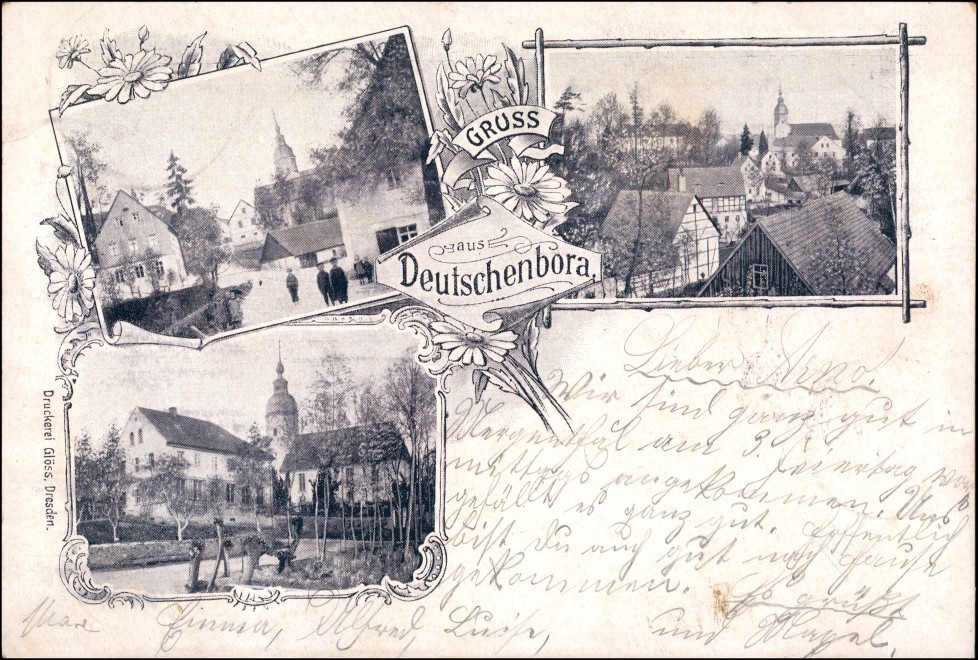 GRUSS
aus
Deutschenbora.
Druckerei Glöss, Dresden.
Lieber Arno.
Wir sind ganz gut in
am 3. Feiertag vor
mittags angekommen. Uns
gefällt es ganz gut.
bist Du auch gut nach Hause
gekommen.
Es grüßt
Max Emma, Alfred, Luise,
und